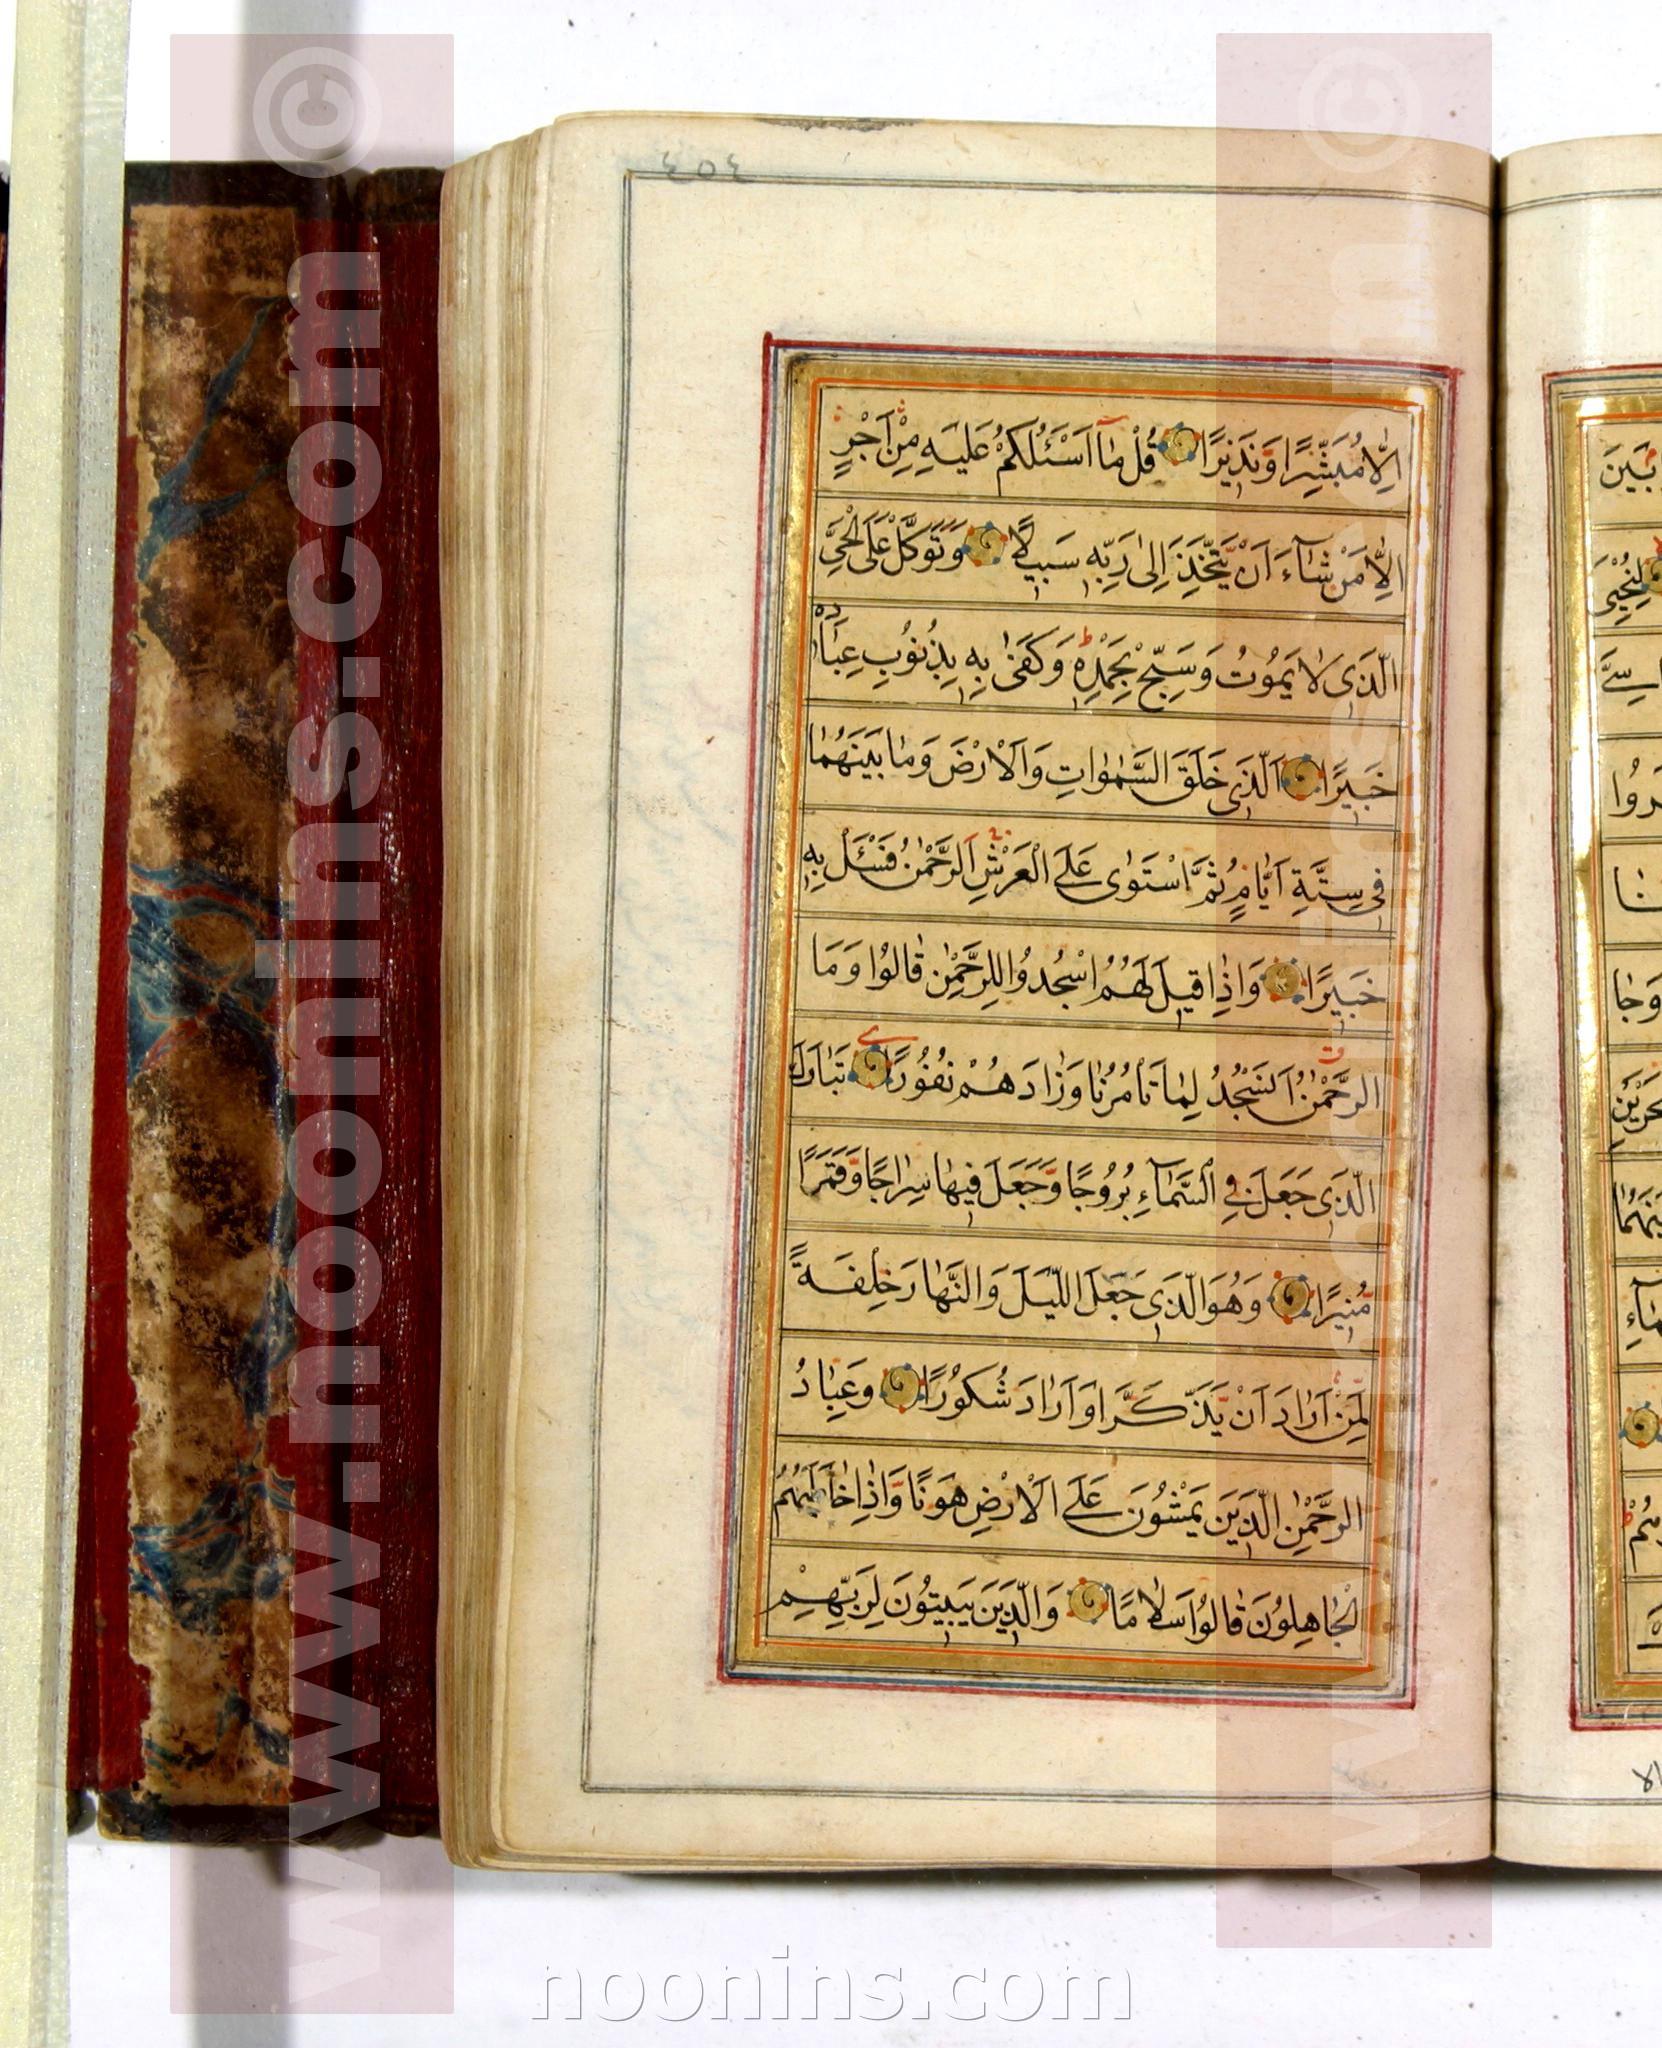 ٤٥٤
اِلّٰا مُبَشِّرًا وَّنَذيرًا قُلْ مٰٓا اَسْـَٔلُكُمْ عَلَيْهِ مِنْ اَجْرٍ
اِلّٰا مَنْ شٰٓاءَ اَنْ يَّتَّخِذَ اِلىٰ رَبِّهٖ سَبيلًا وَتَوَكَّلْ عَلَى الْحَيِّ
الَّذى لٰا يَمُوتُ وَسَبِّحْ بِحَمْدِهٖ وَكَفىٰ بِهٖ بِذُنُوبِ عِبٰادِهٖ
خَبيرًا اَلَّذى خَلَقَ السَّمٰوٰاتِ وَالْاَرْضَ وَمٰا بَيْنَهُمٰا
فى سِتَّةِ اَيّٰامٍ ثُمَّ اسْتَوىٰ عَلَى الْعَرْشِ اَلرَّحْمٰنُ فَسْـَٔلْ بِهٖ
خَبيرًا وَاِذٰا قيلَ لَهُمُ اسْجُدُوا لِلرَّحْمٰنِ قٰالُوا وَمَا
الرَّحْمٰنُ اَنَسْجُدُ لِمٰا تَأْمُرُنٰا وَزٰادَهُمْ نُفُورًا تَبٰارَكَ
الَّذى جَعَلَ فِي السَّمٰٓاءِ بُرُوجًا وَّجَعَلَ فيهٰا سِرٰاجًا وَّقَمَرًا
مُّنيرًا وَهُوَ الَّذى جَعَلَ اللَّيْلَ وَالنَّهٰارَ خِلْفَةً
لِّمَنْ اَرٰادَ اَنْ يَّذَّكَّرَ اَوْ اَرٰادَ شُكُورًا وَعِبٰادُ
الرَّحْمٰنِ الَّذينَ يَمْشُونَ عَلَى الْاَرْضِ هَوْنًا وَّاِذٰا خٰاطَبَهُمُ
الْجٰاهِلُونَ قٰالُوا سَلٰامًا وَالَّذينَ يَبيتُونَ لِرَبِّهِمْ
www.noonins.com ©
www.noonins.com ©
noonins.com